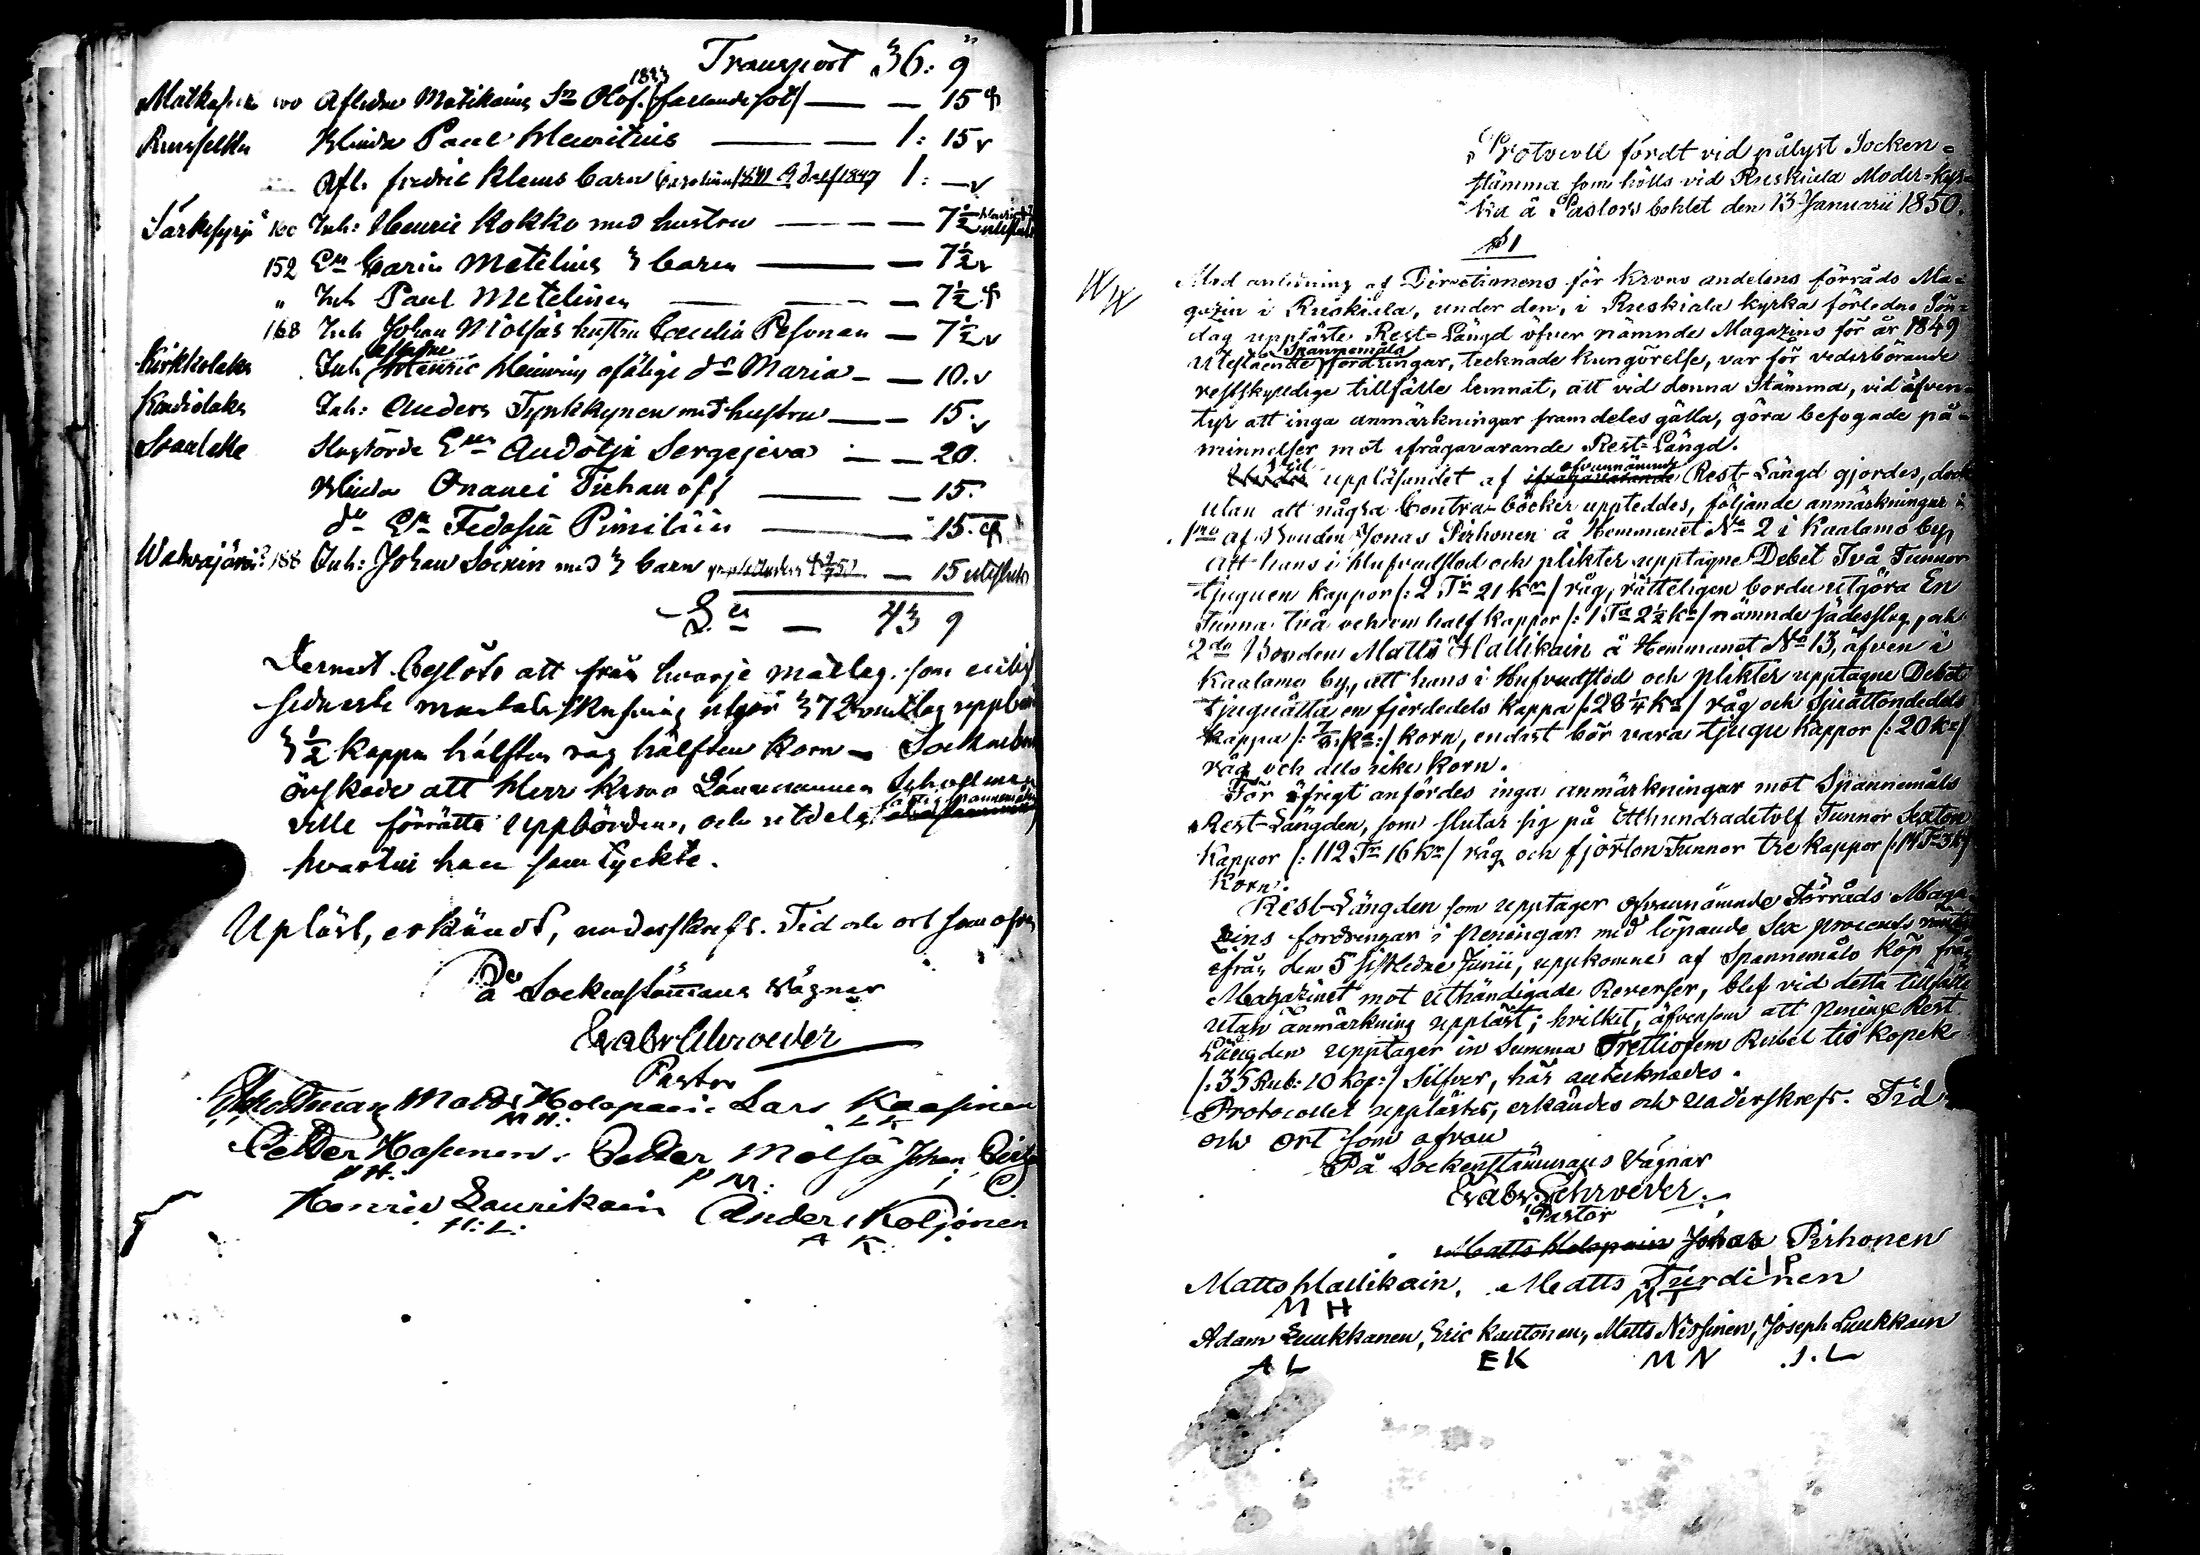 Transport 36: 9
1833
Matkaselkä 100 Aflidne Matikains Sn Olof /fallandesot/ — — 15
Ruuselka Blinda Paul Mauritius — — 1: 15
Afl. Fredric Klems barn 1: —
Särkisyrjä Inh: Henric Kokko med hustru — — 7½
152 En Carin Metelius 3 barn — — 7½
" Inh Paul Metelinen — — 7½
168 Inh Johan Mölsäs hustru Cecilia Pesonen — 7½
Kirkkolaks Inh Henric Heinins ofälige dr Maria — — 10.
Kondiolaks Inh: Anders Tynkkynen med hustru — — 15.
Soanlaks Enn Audotja Sergejeva — — 20.
Blinda Onanei Tichanoff — — 15.
do En Fedosia — 15.
188 Inh: Johan Soikin med 3 barn — 15
S:a — 43 9
Dernest beslöts att från hvarje matlag, som enligt
sednaste utgör 372 matlag uppbära
3½ kappa hälften råg hälften korn —
önskade att Herr Krono Länsmannen
ville förrätta uppbörden, och utdela
hvartill han samtyckte.
Upläst, erkändt, underskrefs. Tid och ort som ofvan
På Sockenstämmans vägnar
Gabr Schroeder
Pastor
Matts Holopain Lars Kaasinen
M H: L K
Petter Hosenen. Petter Mölsä Johan
P H: P M:
Henric Laurikain Anders Koljonen
H: L: A K:
Protocoll fördt vid pålyst Socken=
stämma som hölls vid Ruskiala Moder=kyr=
ka å Pastors bohlet den 13 Januarii 1850.
§ 1
Med anledning af Directionens för krono andelens förråds Ma=
gazin i Ruskiala, under den, i Ruskiala kyrka förledne Sön=
dag uppläste Rest=Längd öfver nämnde Magazins för år 1849
Spannemåls
utestående fordringar, tecknade kungörelse, var för vederbörande
restskyldige tillfälle lemnat, att vid denna Stämma, vid äfven=
tyr att inga anmärkningar framdeles gälla, göra befogade på=
minnelser mot ifrågavarande Rest=Längd.
Vid ofvannämnde
uppläsandet af ifrågavarande Rest-Längd gjordes, dock
utan att några Contra-böcker uppteddes, följande anmärkningar
1mo af Bonden Jonas Pirhonen å Hemmanet No 2 i Kaalamo by,
att hans i hufvudstod och plikter upptagne Debet Två Tunnor
tjuguen kappor /: 2 Tr 21 kr / råg, rätteligen borde utgöra En
Tunna två och en half kappor /: 1 Ta 2½ kr / nämnde sädesslag, och
2do Bonden Matts Hallikain å Hemmanet No 13, äfven i
Kaalamo by, att hans i Hufvudstod och plikter upptagne Debet
tjuguåtta en fjerdedels kappa /: 28¼ kr / råg och Sjuåttondedels
kappa /: 7/8 ka :/ korn, endast bör vara tjugu kappor /: 20 kr /
råg och alls icke korn.
För öfrigt anfördes inga anmärkningar mot Spannemåls
Rest-Längden, som slutar sig på Etthundradetolf Tunnor Sexton
kappor /: 112 Tr 16 kr / råg och fjorton Tunnor tre kappor /: 14 Tr 3 kr /
korn.
Rest-Längden som upptager ofvannämnde Förråds Maga-
zins fordringar i penningar med löpande Sex procents
ifrån den 5 sistledne Junii, uppkomne af Spannemåls köp från
Magazinet mot uthändigade Reverser, blef vid detta tillfälle
utan anmärkning uppläst; hvilket, äfvensom att Penninge Rest
Längden upptager in Summa Trettiofem Rubel tio kopek
/: 35 Rub: 10 kop: / Silfver, här antecknades.
Protocollet upplästes, erkändes och underskrefs. Tid
och ort som ofvan
På Sockenstämmans vägnar
Gabr. Schroeder.
Pastor
Matts Holopain Johan Pirhonen
I P
Matts Hallikain, Matts Turdinen
M H M T
Adam Luukkanen, Eric Kautonen, Matts Nissinen, Joseph Luukkain
A L E K M N J. L